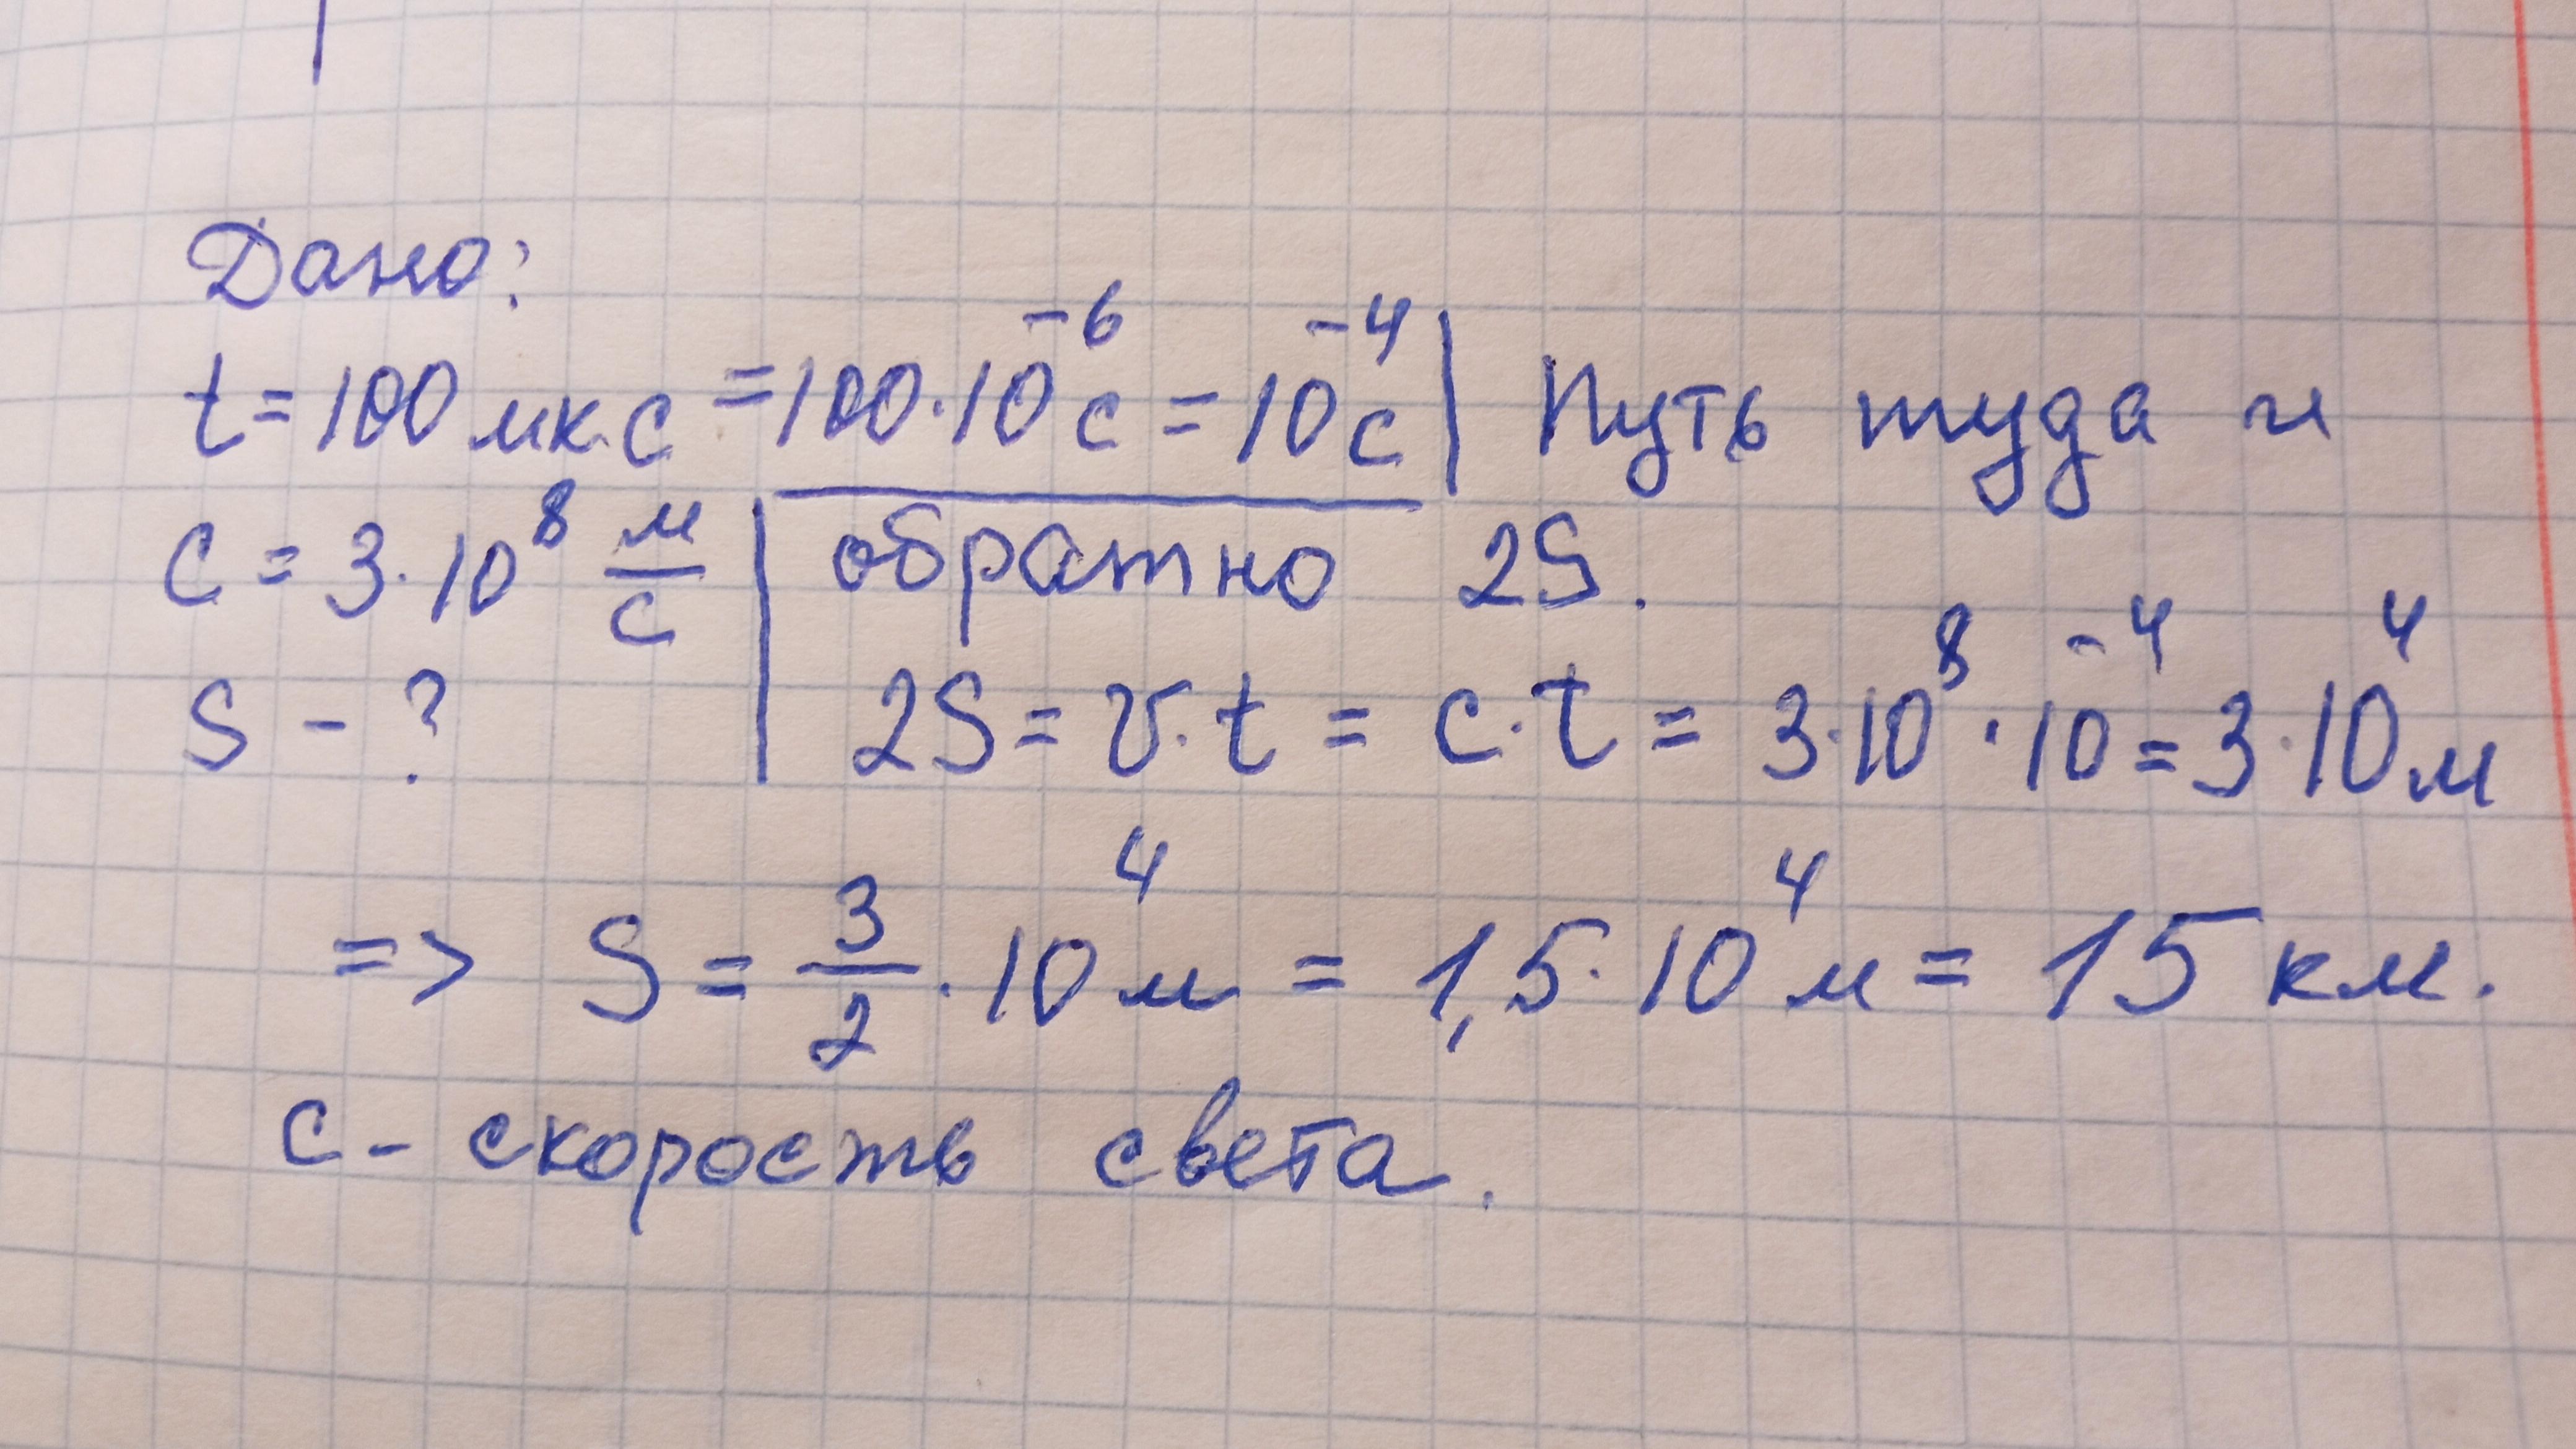 Дано:
t = 100 мк.с = 100·10⁻⁶ с = 10⁻⁴ с | Путь туда и
c = 3·10⁸ м/с | обратно 2S.
S - ? | 2S = v·t = c·t = 3·10⁸·10⁻⁴ = 3·10⁴ м
=> S = 3/2 · 10⁴ м = 1,5·10⁴ м = 15 км.
c - скорость света.